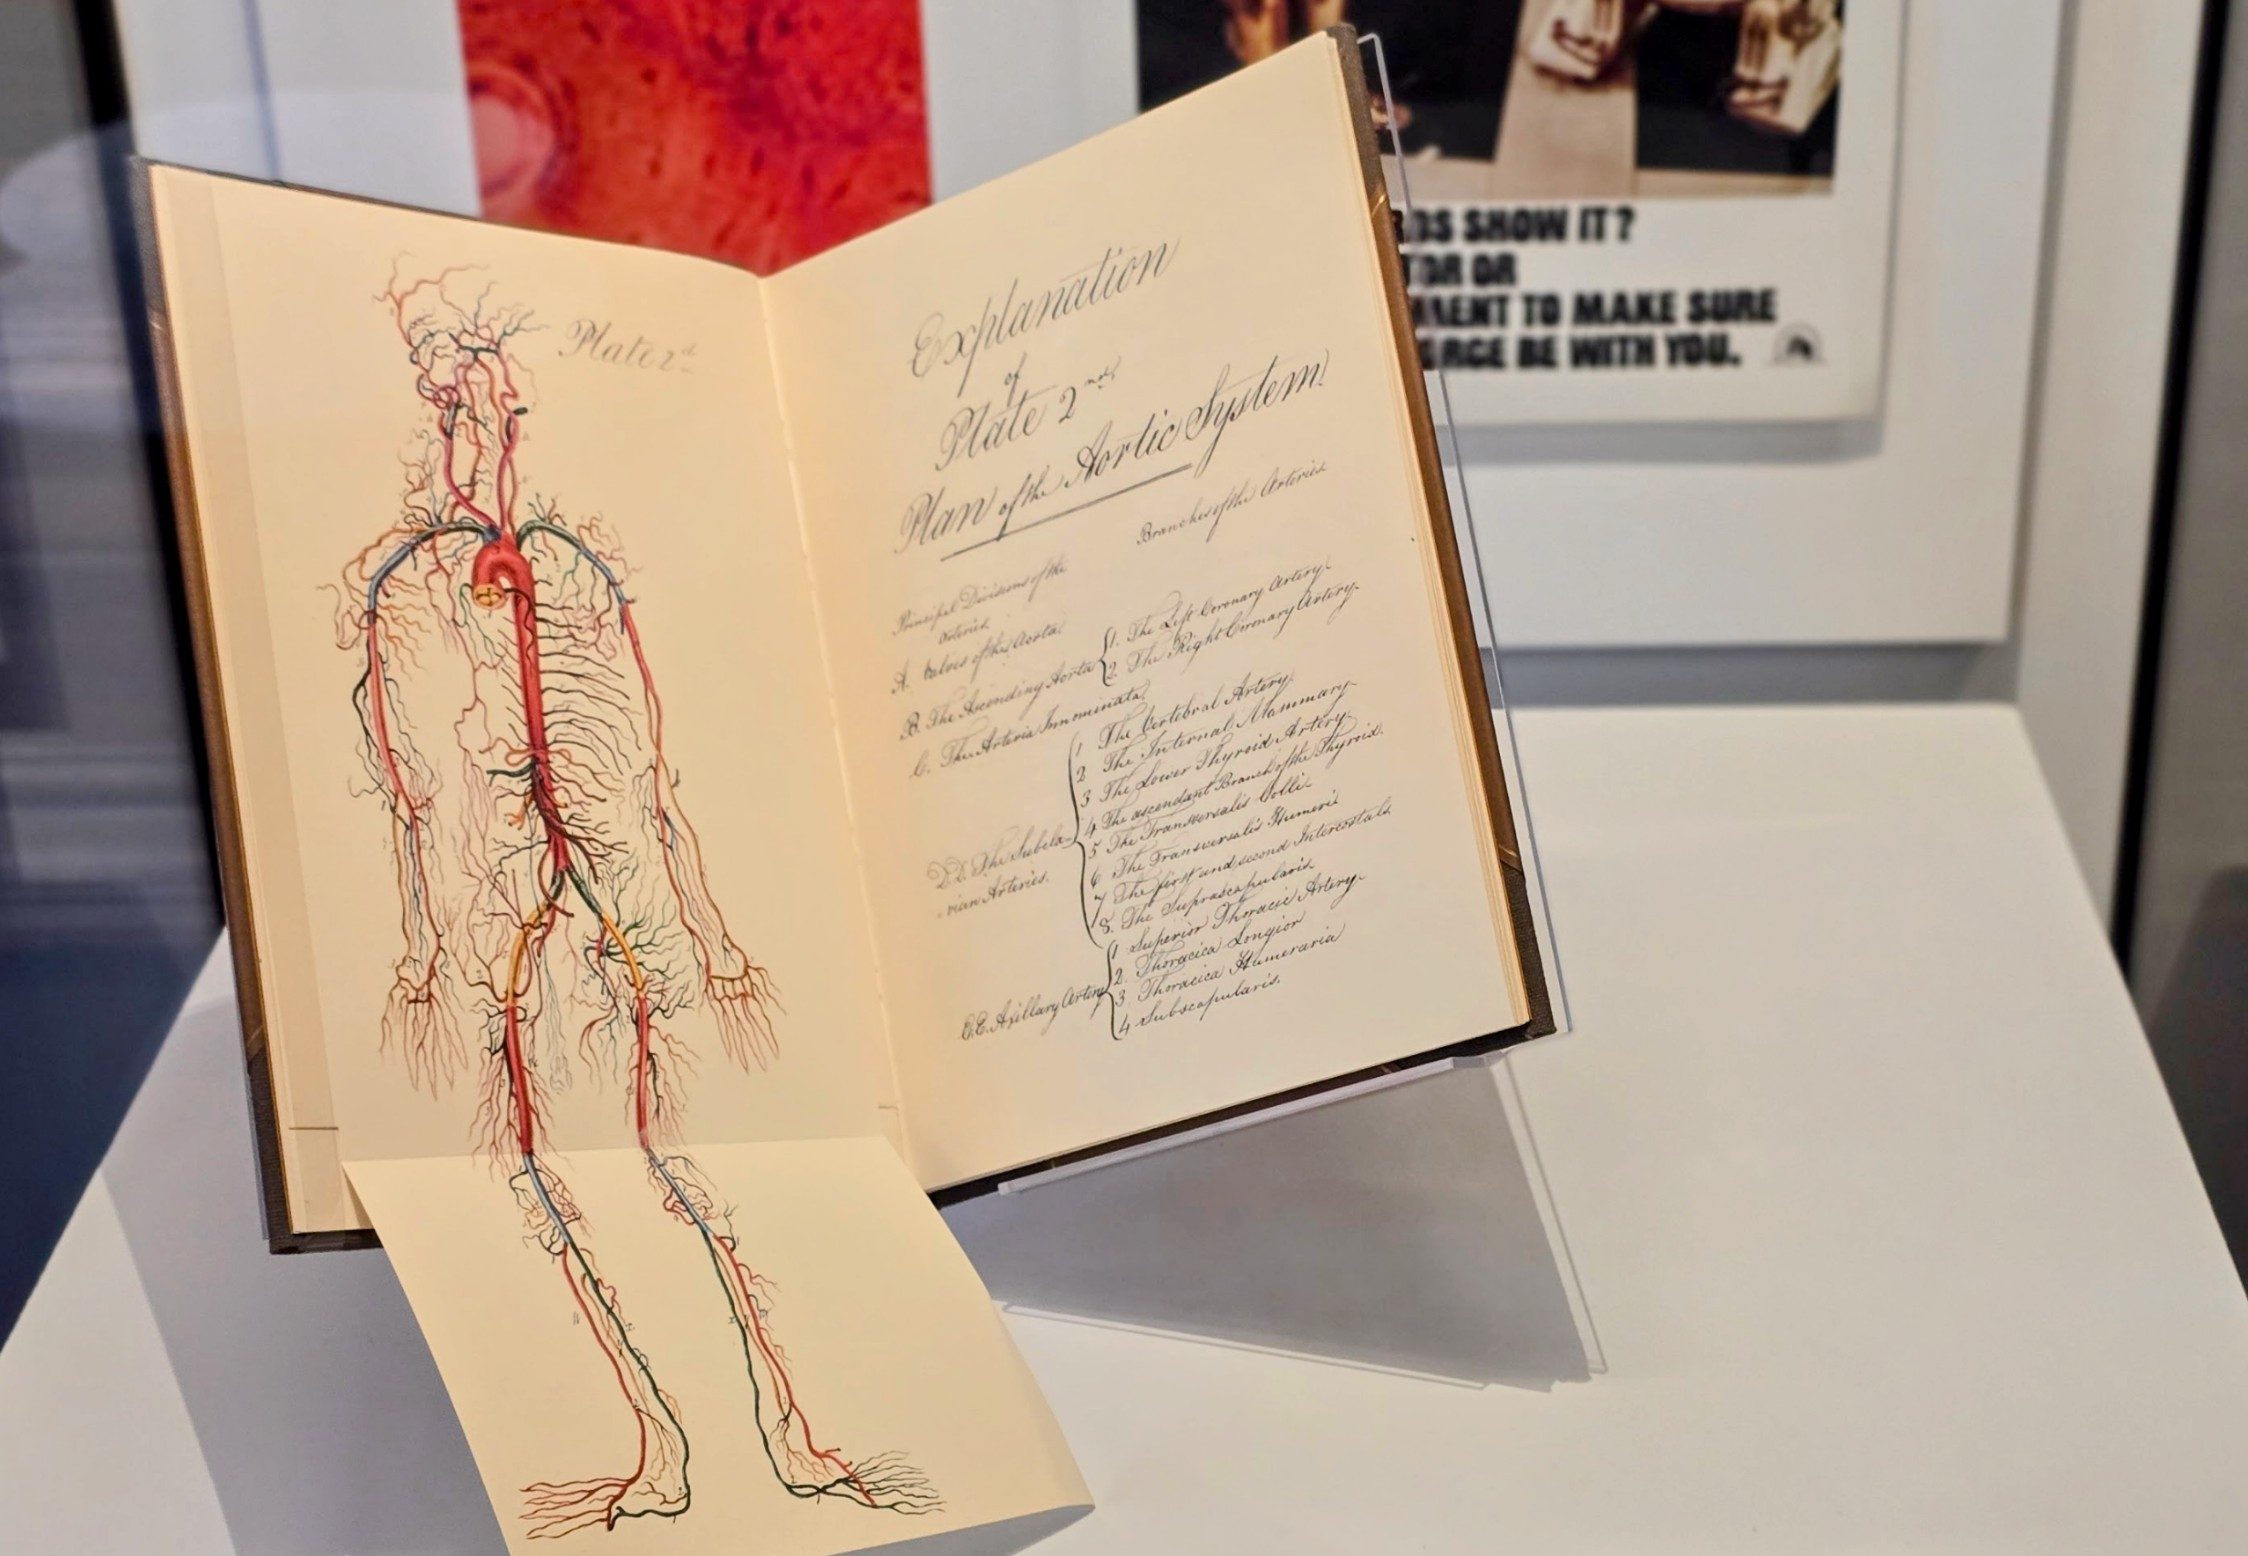 Plate 2d
Explanation
of
Plate 2nd
Plan of the Aortic System
Principal Divisions of the
arteries
Branches of the Arteries
A. Valves of the Aorta
B. The Ascending Aorta
1. The Left Coronary Artery
2. The Right Coronary Artery
C. The Arteria Innominata
D.D. The Subcla-
vian Arteries.
1 The Vertebral Artery
2 The Internal Mammary
3 The Lower Thyroid Artery
4 The ascendant Branch of the Thyroid
5 The Transversalis Colli
6 The Transversalis Humeri
7 The first and second Intercostals
8. The Suprascapularis
E.E. Axillary Artery
1 Superior Thoracic Artery
2. Thoracica Longior
3 Thoracica Humeraria
4 Subscapularis.
SHOW IT?
OR
TO MAKE SURE
BE WITH YOU.